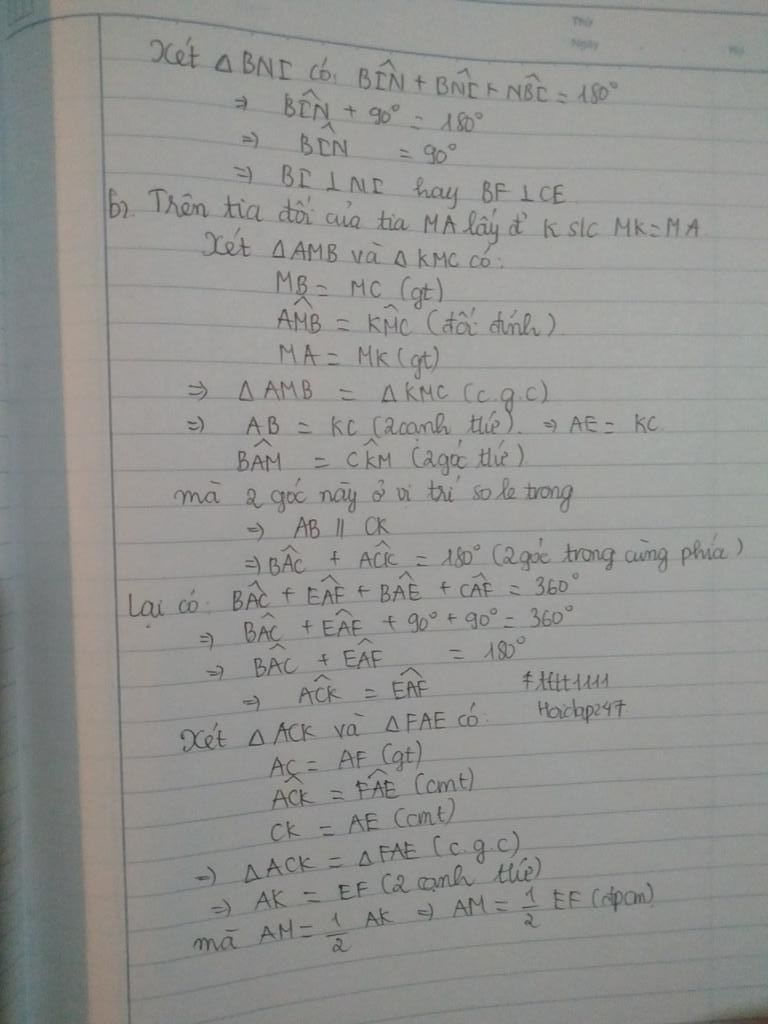 Thứ
Ngày
Xét △BNI có: BÎN + BN̂I + NB̂I = 180°
⇒ BÎN + 90° = 180°
⇒ BÎN = 90°
⇒ BI ⊥ NI hay BF ⊥ CE
b, Trên tia đối của tia MA lấy đ' K s/c MK = MA
Xét △AMB và △KMC có:
MB = MC (gt)
AM̂B = KM̂C (đối đỉnh)
MA = MK (gt)
⇒ △AMB = △KMC (c.g.c)
⇒ AB = KC (2 cạnh t/ứ) ⇒ AE = KC
BÂM = CK̂M (2 góc t/ứ)
mà 2 góc này ở vị trí so le trong
⇒ AB // CK
⇒ BÂC + AĈK = 180° (2 góc trong cùng phía)
Lại có: BÂC + EÂF + BÂE + CÂF = 360°
⇒ BÂC + EÂF + 90° + 90° = 360°
⇒ BÂC + EÂF = 180°
⇒ AĈK = EÂF
Hoidap247
Xét △ACK và △FAE có:
AC = AF (gt)
AĈK = FÂE (cmt)
CK = AE (cmt)
⇒ △ACK = △FAE (c.g.c)
⇒ AK = EF (2 cạnh t/ứ)
mà AM = 1/2 AK ⇒ AM = 1/2 EF (đpcm)